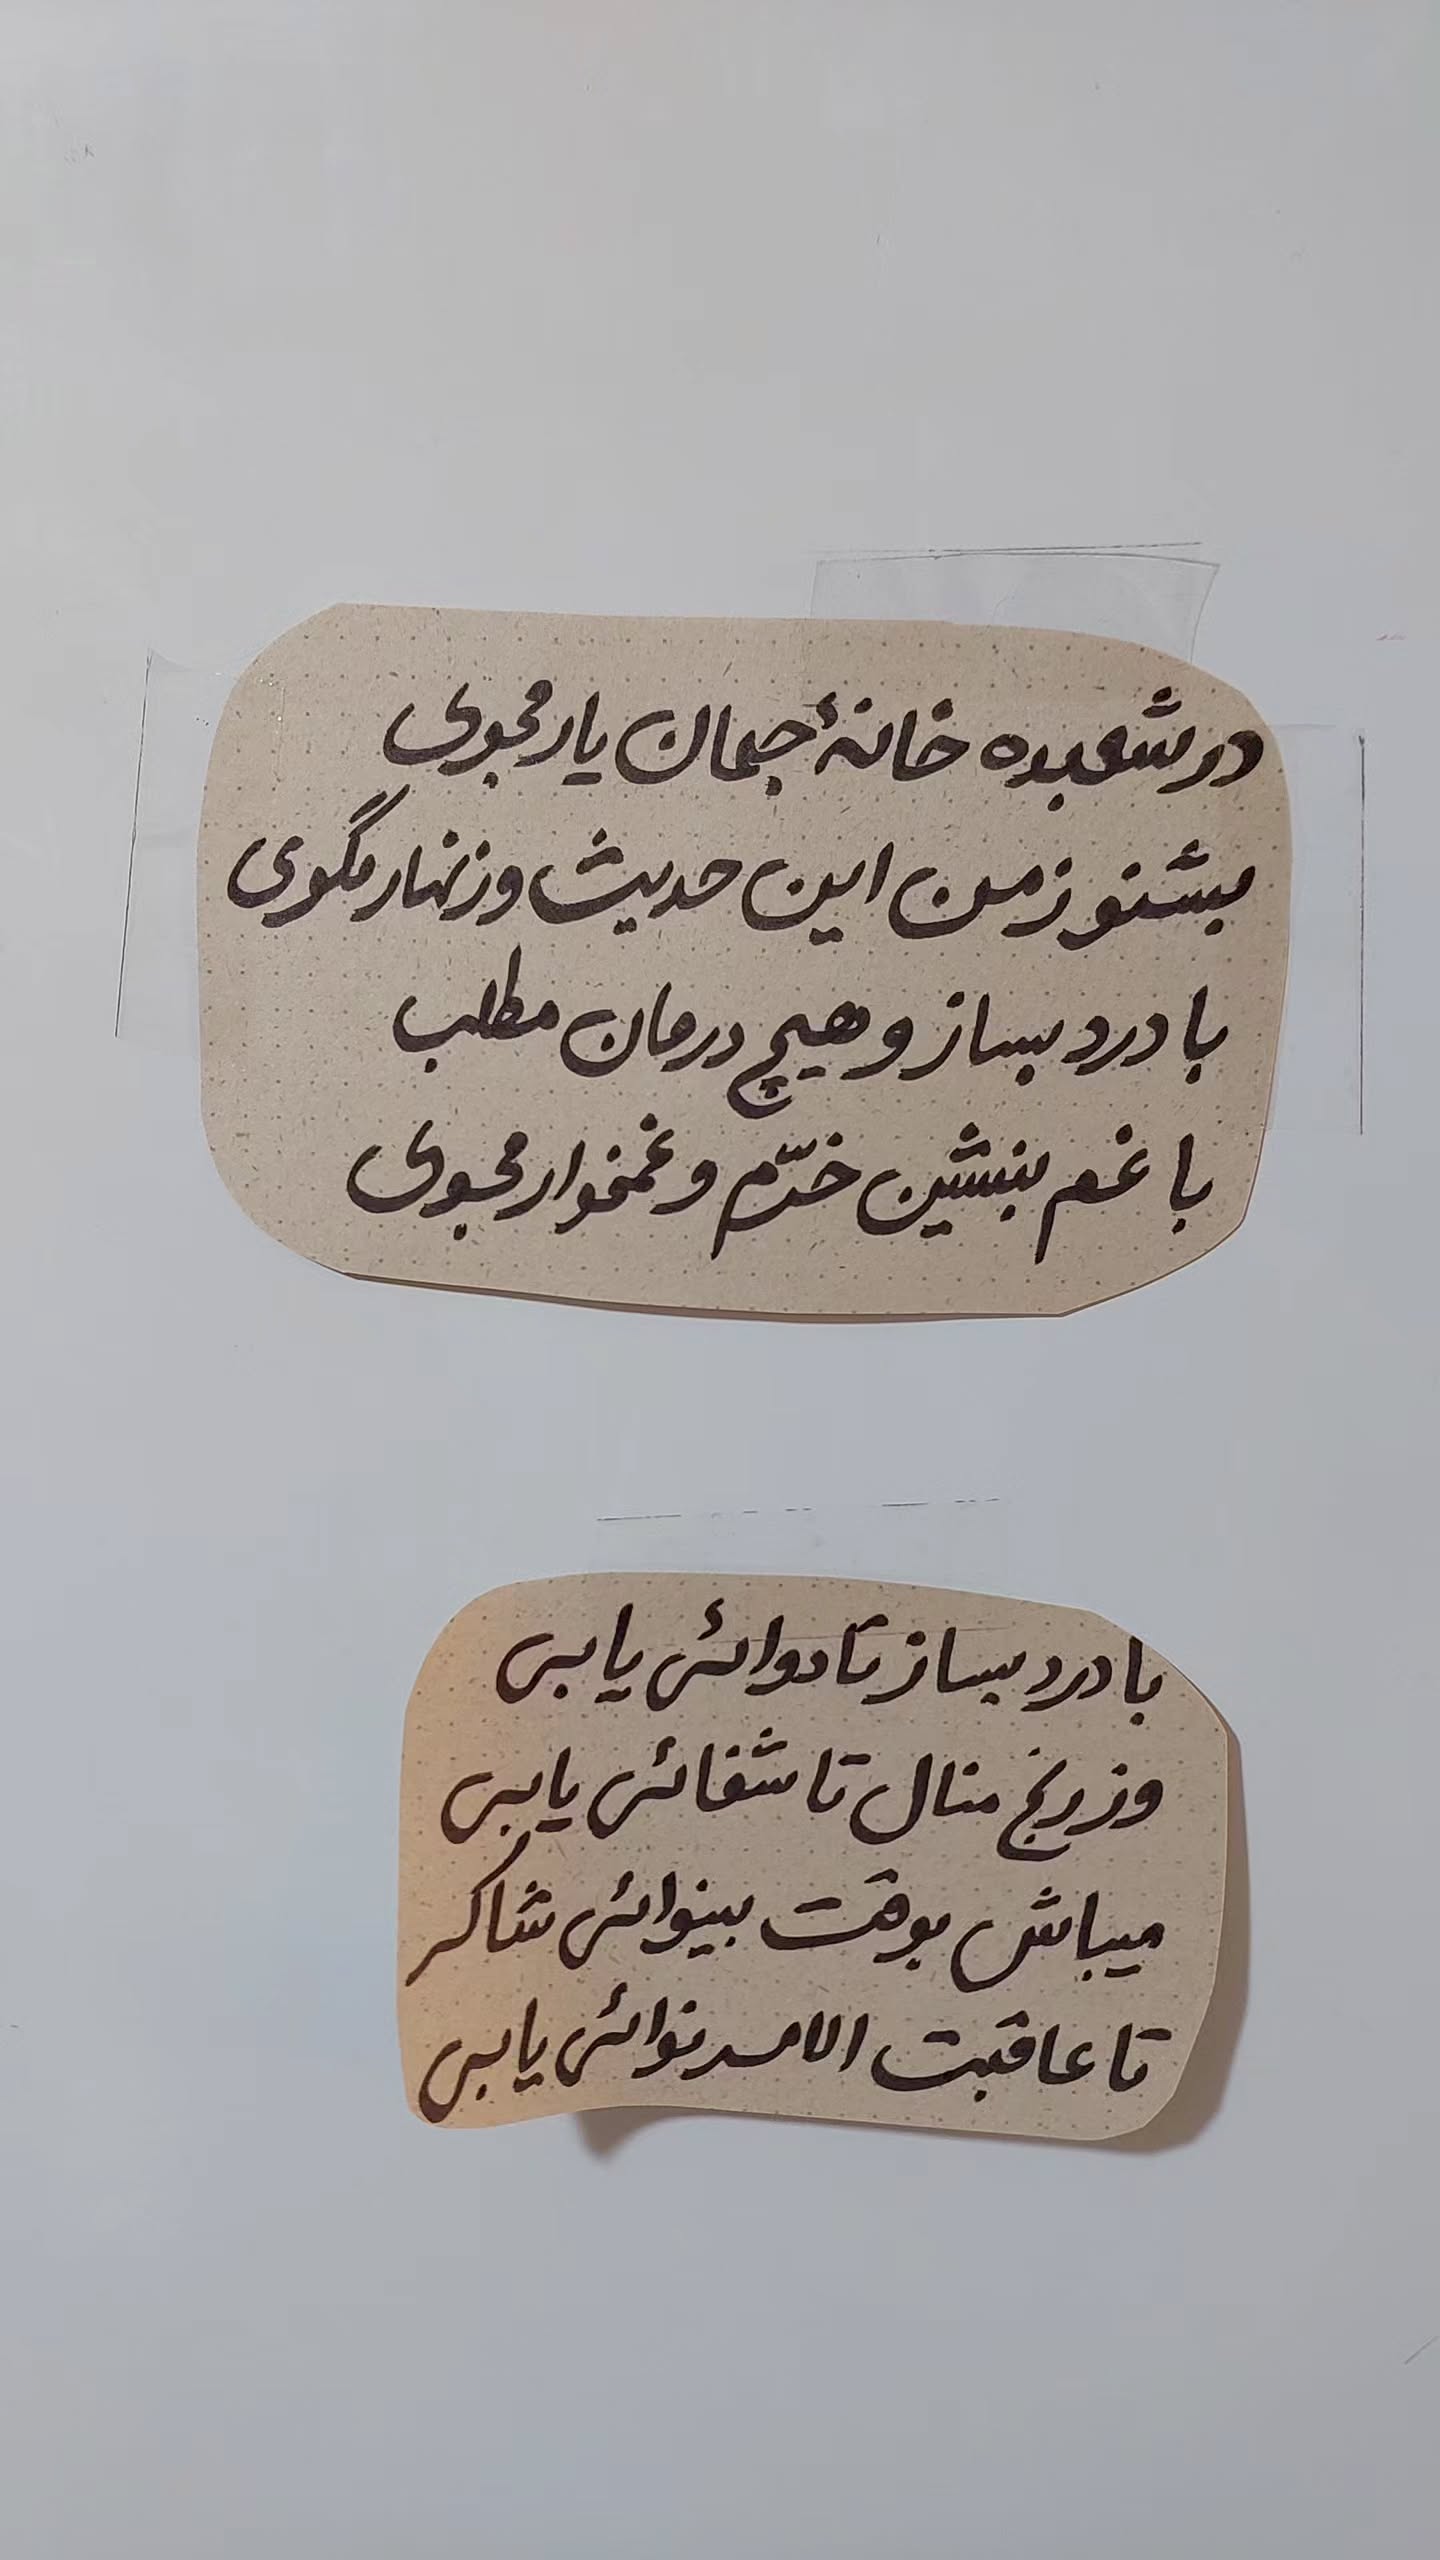 در شعبده خانهٔ جهان یار مجوی
بشنو ز من این حدیث و زنهار مگوی
با درد بساز و هیچ درمان مطلب
با غم بنشین خرّم و غمخوار مجوی
با درد بساز تا دوائی یابی
وز رنج منال تا شفائی یابی
میباش بوقت بینوائی شاکر
تا عاقبت الامر نوائی یابی